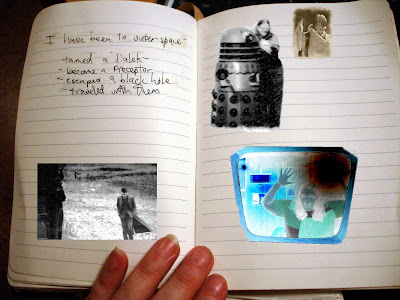 I have been to outer space
- tamed a Dalek
- became a Preceptor
- escaped a black hole
- traveled with them